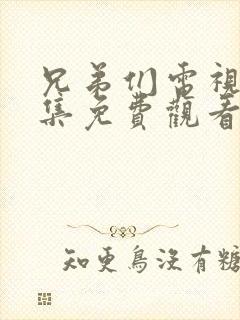 兄弟们雷視
集免費觀看
知更鳥沒有糖